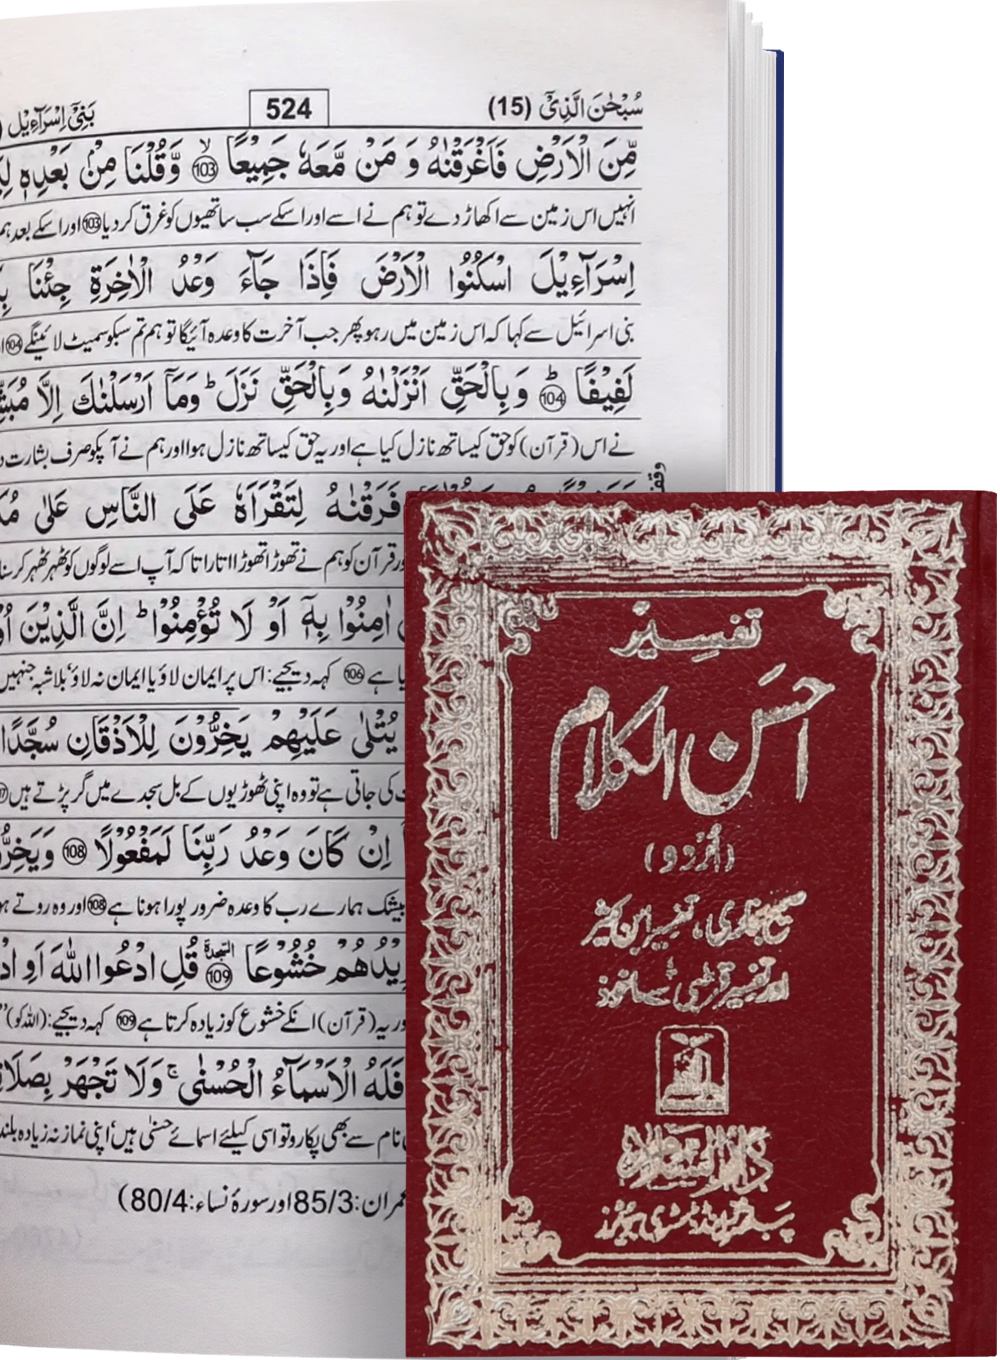 سُبْحٰنَ الَّذِیْۤ (15)
524
بَنِیْۤ اِسْرَآءِیْل
مِّنَ الْاَرْضِ فَاَغْرَقْنٰهُ وَ مَنْ مَّعَهٗ جَمِیْعًا ۙ 103 وَّقُلْنَا مِنْۢ بَعْدِهٖ
انہیں اس زمین سے اکھاڑ دے تو ہم نے اسے اور اسکے سب ساتھیوں کو غرق کر دیا 103 اور اسکے بعد ہم
اِسْرَآءِیْلَ اسْكُنُوا الْاَرْضَ فَاِذَا جَآءَ وَعْدُ الْاٰخِرَةِ جِئْنَا
بنی اسرائیل سے کہا کہ اس زمین میں رہو پھر جب آخرت کا وعدہ آئیگا تو ہم تم سبکو سمیٹ لائینگے 104
لَفِیْفًا ؕ 104 وَبِالْحَقِّ اَنْزَلْنٰهُ وَبِالْحَقِّ نَزَلَ ؕ وَمَاۤ اَرْسَلْنٰكَ اِلَّا
نے اس (قرآن) کو حق کیساتھ نازل کیا ہے اور یہ حق کیساتھ نازل ہوا اور ہم نے آپکو صرف بشارت
فَرَقْنٰهُ لِتَقْرَاَهٗ عَلَی النَّاسِ عَلٰی
قرآن کو ہم نے تھوڑا تھوڑا اتارا تاکہ آپ اسے لوگوں کو ٹھہر ٹھہر کر
اٰمِنُوْا بِهٖۤ اَوْ لَا تُؤْمِنُوْا ؕ اِنَّ الَّذِیْنَ
ہے 106 کہہ دیجیے: اس پر ایمان لاؤ یا ایمان نہ لاؤ، بلاشبہ جنہیں
یُتْلٰی عَلَیْهِمْ یَخِرُّوْنَ لِلْاَذْقَانِ سُجَّدًا
کی جاتی ہے تو وہ اپنی ٹھوڑیوں کے بل سجدے میں گر پڑتے ہیں
اِنْ كَانَ وَعْدُ رَبِّنَا لَمَفْعُوْلًا 108
بیشک ہمارے رب کا وعدہ ضرور پورا ہونا ہے 108 اور وہ روتے
خُشُوْعًا السجدة 109 قُلِ ادْعُوا اللّٰهَ اَوِ
اور یہ (قرآن) انکے خشوع کو زیادہ کرتا ہے 109 کہہ دیجیے: (اللہ کو)
فَلَهُ الْاَسْمَآءُ الْحُسْنٰی ۚ وَلَا تَجْهَرْ
نام سے بھی پکارو تو اسی کیلئے اسمائے حسنیٰ ہیں، اپنی نماز نہ زیادہ بلند
85/3 اور سورۂ نساء: 80/4)
تفسیر
احسن الکلام
(اُردو)
صحیح بخاری، تفسیر ابن کثیر
اور تفسیر قرطبی سے ماخوذ
دارالسلام
پبلشرز اینڈ ڈسٹری بیوٹرز